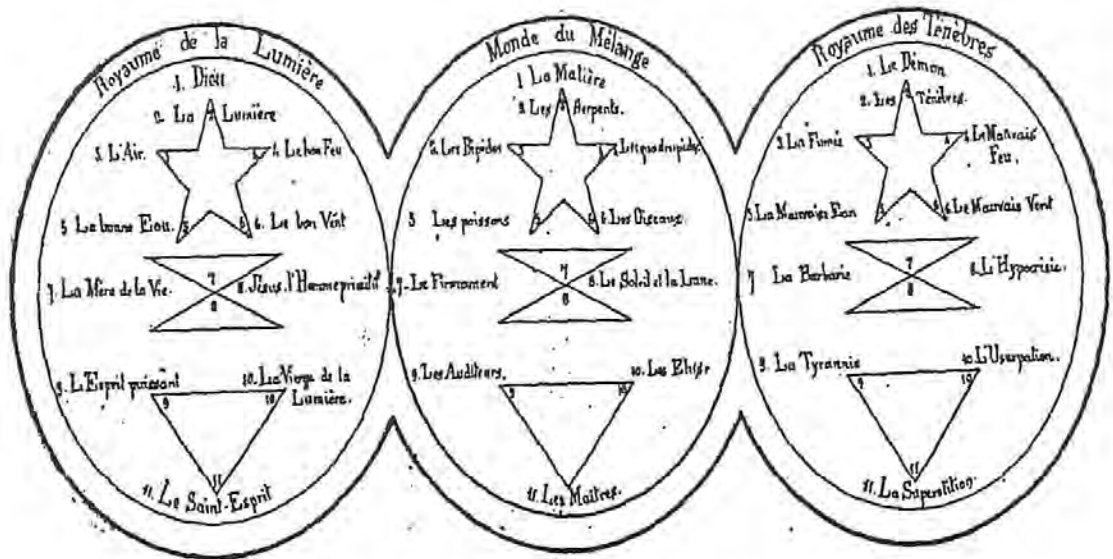 Royaume de la Lumière
1. Dieu
2. La Lumière
3. L'Air.
4. Le bon Feu
5. La bonne Eau.
6. Le bon Vent
7. La Mère de la Vie.
8. Jésus, l'Homme primitif
9. L'Esprit puissant
10. La Vierge de la
Lumière.
11. Le Saint-Esprit
2
3
4
5
6
7
8
9
10
11
Monde du Mélange
1 La Matière
2. Les Serpents.
Les Bipèdes
Les quadrupèdes
5 Les poissons
6. Les Oiseaux
7. Le Firmament
8. Le Soleil et la Lune.
9. Les Auditeurs.
10. Les Elus
11. Les Maitres.
7
8
9
10
Royaume des Ténèbres
1. Le Démon
2. Les Ténèbres.
3. La Fumée
4. Le Mauvais
Feu.
5. La Mauvaise Eau
6. Le Mauvais Vent
7 La Barbarie
8. L'Hypocrisie.
9. La Tyrannie
10. L'Usurpation.
11. La Superstition.
3
4
5
6
7
8
9
10
11